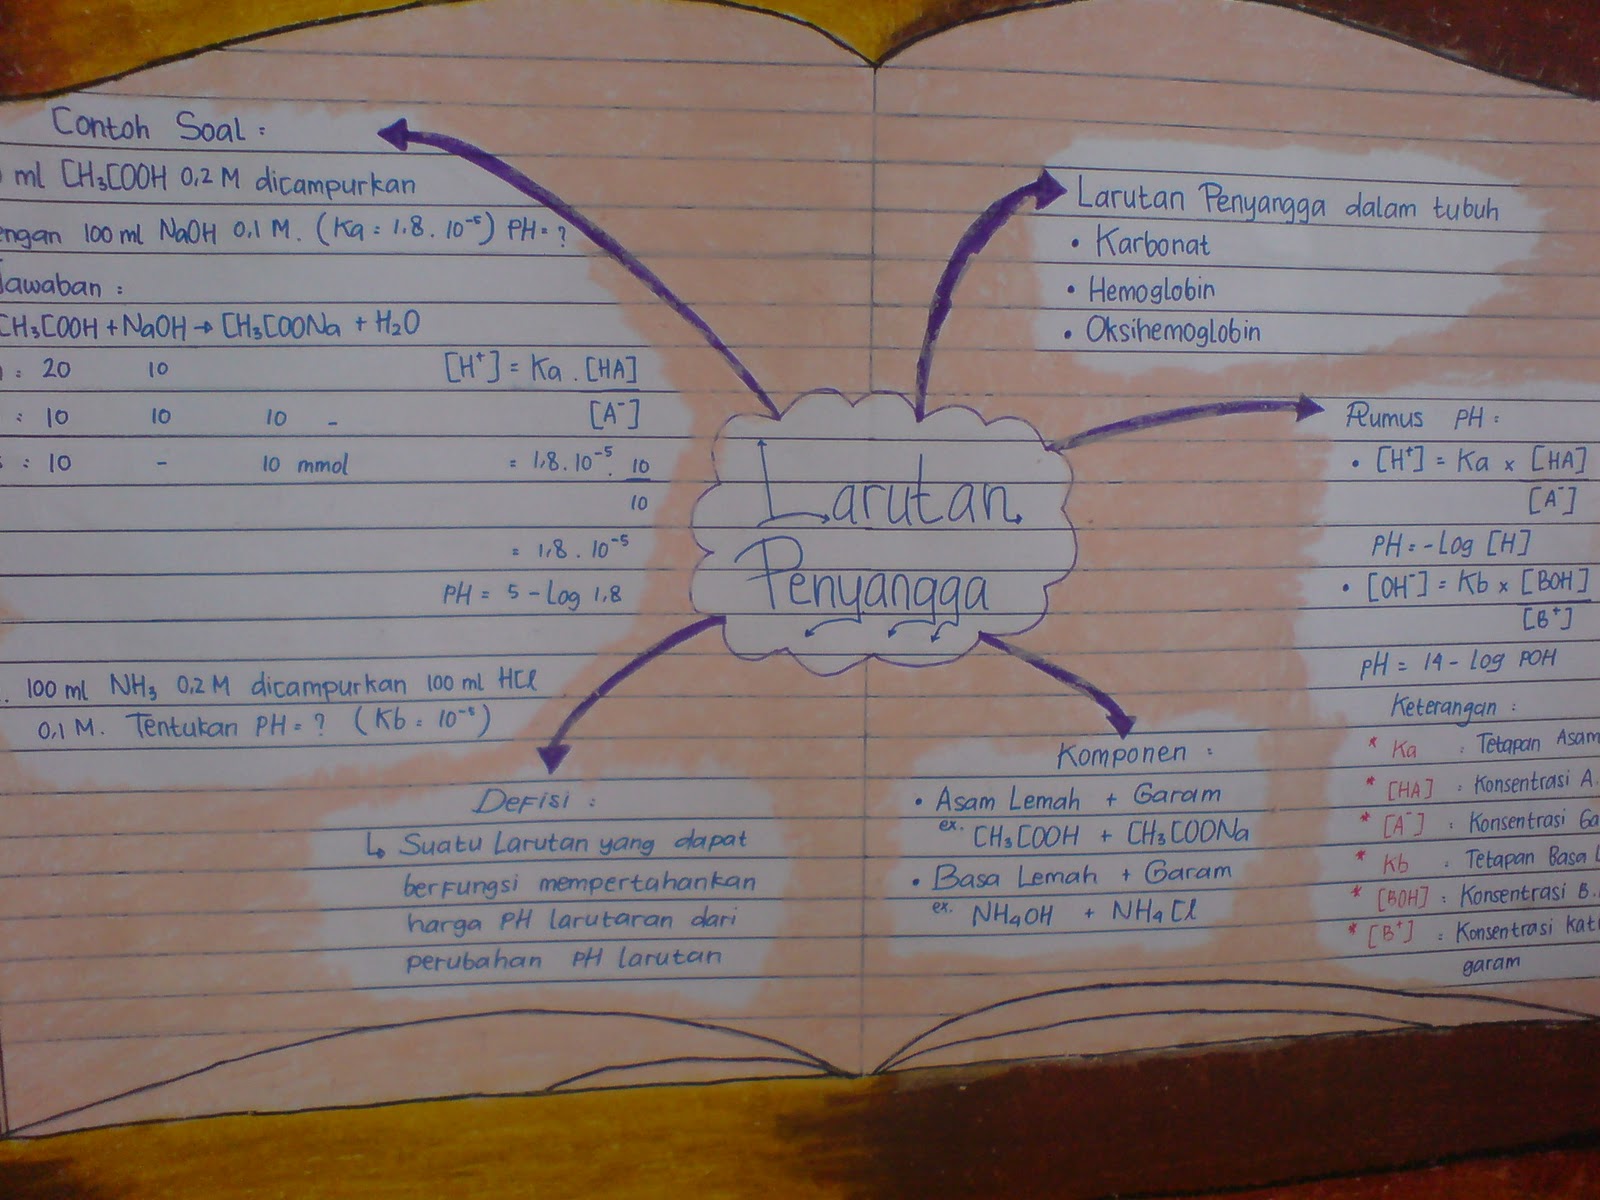 Contoh Soal :
ml CH₃COOH 0,2 M dicampurkan
engan 100 ml NaOH 0,1 M. (Ka = 1,8 . 10⁻⁵) PH = ?
Jawaban :
CH₃COOH + NaOH → CH₃COONa + H₂O
: 20 10
: 10 10 10 -
: 10 - 10 mmol
[H⁺] = Ka . [HA]
[A⁻]
= 1,8 . 10⁻⁵ . 10
10
= 1,8 . 10⁻⁵
PH = 5 - Log 1,8
. 100 ml NH₃ 0,2 M dicampurkan 100 ml HCl
0,1 M. Tentukan PH = ? (Kb = 10⁻⁵)
Larutan Penyangga dalam tubuh
• Karbonat
• Hemoglobin
• Oksihemoglobin
Larutan
Penyangga
Rumus PH :
• [H⁺] = Ka x [HA]
[A⁻]
PH = -Log [H]
• [OH⁻] = Kb x [BOH]
[B⁺]
PH = 14 - log POH
Keterangan :
* Ka : Tetapan Asam
* [HA] : Konsentrasi A.
* [A⁻] : Konsentrasi Ga
* Kb : Tetapan Basa
* [BOH] : Konsentrasi B.
* [B⁺] : Konsentrasi Kat
garam
Defisi :
↳ Suatu Larutan yang dapat
berfungsi mempertahankan
harga PH larutaran dari
perubahan PH larutan
Komponen :
• Asam Lemah + Garam
ex. CH₃COOH + CH₃COONa
• Basa Lemah + Garam
ex. NH₄OH + NH₄Cl